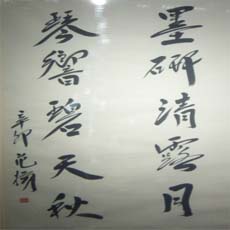 墨研清露月
琴響碧天秋
辛卯 范撝